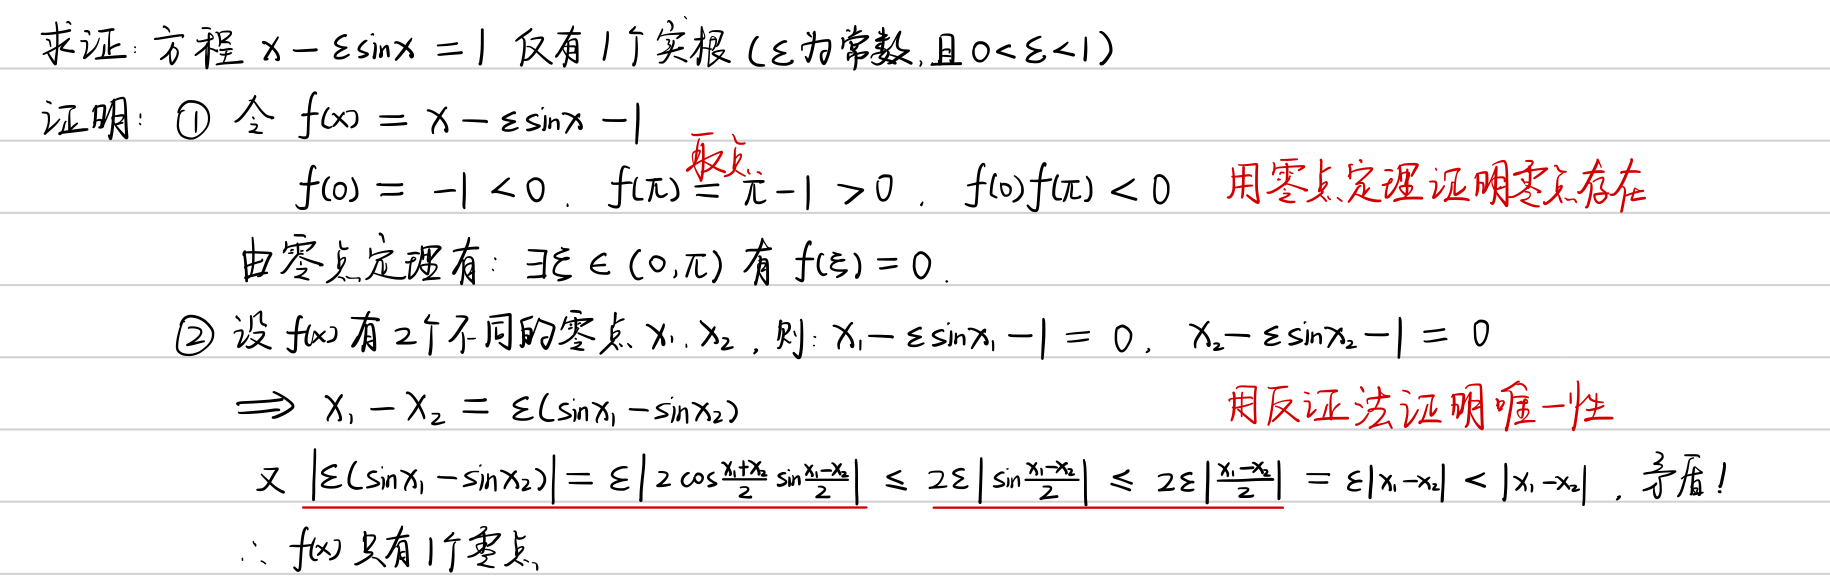 求证: 方程 x - εsinx = 1 仅有1个实根 (ε为常数,且0<ε<1)
证明: ① 令 f(x) = x - εsinx - 1
取点
f(0) = -1 < 0 . f(π) = π - 1 > 0 . f(0)f(π) < 0 用零点定理证明零点存在
由零点定理有: ∃ξ ∈ (0,π) 有 f(ξ) = 0.
② 设 f(x) 有2个不同的零点 x₁、x₂ , 则: x₁ - εsinx₁ - 1 = 0, x₂ - εsinx₂ - 1 = 0
⇒ x₁ - x₂ = ε(sinx₁ - sinx₂) 用反证法证明唯一性
又 |ε(sinx₁ - sinx₂)| = ε|2cos (x₁+x₂)/2 sin (x₁-x₂)/2| ≤ 2ε|sin (x₁-x₂)/2| ≤ 2ε|(x₁-x₂)/2| = ε|x₁-x₂| < |x₁-x₂| , 矛盾!
∴ f(x) 只有1个零点